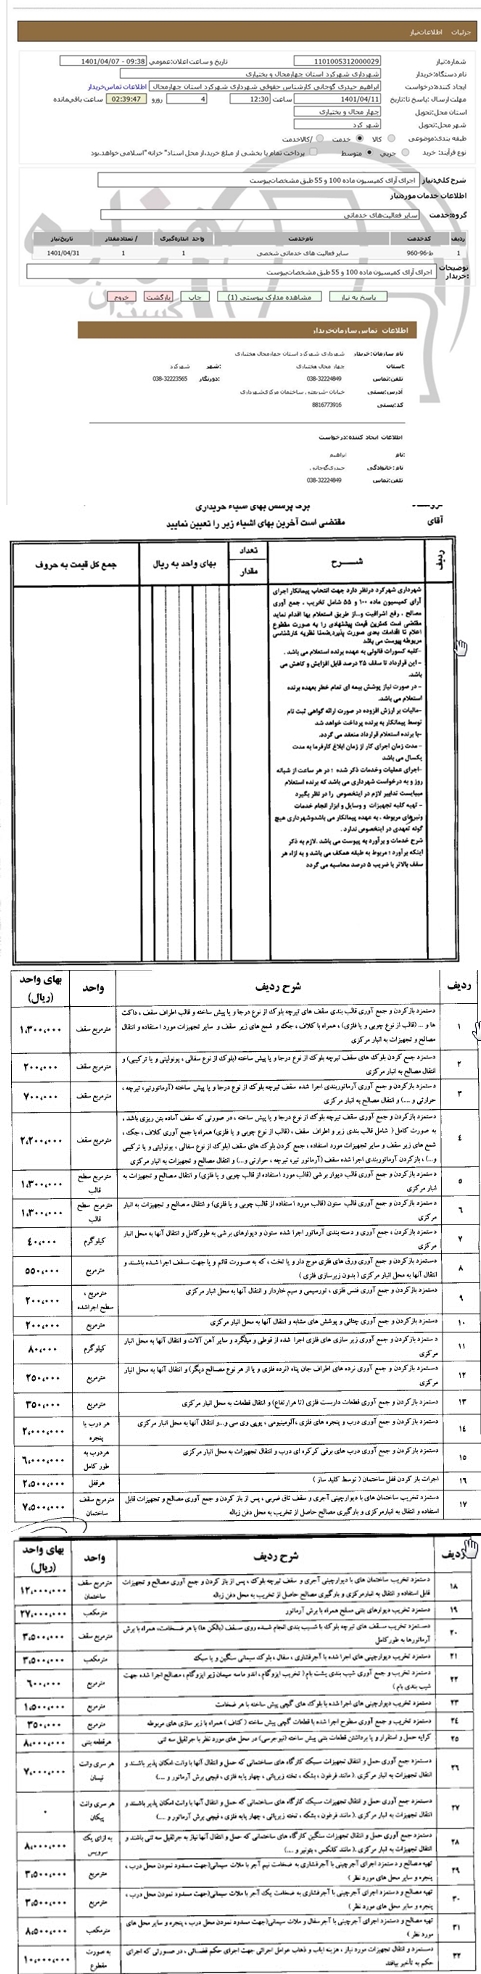 جزئیات اطلاعات نیاز
شماره نیاز: 1101005312000029 تاریخ و ساعت اعلان عمومی: 1401/04/07 - 09:38
نام دستگاه خریدار: شهرداری شهرکرد استان چهارمحال و بختیاری
ایجاد کننده درخواست: ابراهیم حیدری گوجانی کارشناس حقوقی شهرداری شهرکرد استان چهارمحال اطلاعات تماس خریدار
مهلت ارسال پاسخ تا تاریخ: 1401/04/11 ساعت 12:30 4 روز و 02:39:47 ساعت باقی مانده
استان محل تحویل: چهار محال و بختیاری
شهر محل تحویل: شهر کرد
طبقه بندی موضوعی: کالا خدمت کالا/خدمت
نوع فرآیند خرید: جزیی متوسط پرداخت تمام یا بخشی از مبلغ خرید،از محل اسناد "خزانه اسلامی" خواهد بود.
شرح کلی نیاز: اجرای آرای کمیسیون ماده 100 و 55 طبق مشخصات پیوست
اطلاعات خدمات مورد نیاز
گروه خدمت: سایر فعالیت‌های خدماتی
ردیف کد خدمت نام خدمت واحد اندازه گیری تعداد / مقدار تاریخ نیاز
1 ط-96-960 سایر فعالیت های خدماتی شخصی 1 1 1401/04/31
توضیحات خریدار: اجرای آرای کمیسیون ماده 100 و 55 طبق مشخصات پیوست
پاسخ به نیاز مشاهده مدارک پیوستی (1) چاپ بازگشت خروج
اطلاعات تماس سازمان خریدار
نام سازمان خریدار: شهرداری شهرکرد استان چهارمحال و بختیاری
استان: چهار محال و بختیاری شهر: شهرکرد
تلفن تماس: 038-32224849 دورنگار: 038-32223565
آدرس پستی: خیابان شریعتی ، ساختمان مرکزی شهرداری
کد پستی: 8816773916
اطلاعات ایجاد کننده درخواست
نام: ابراهیم
نام خانوادگی: حیدری گوجانی
تلفن تماس: 038-32224849
برگ پرسش بهای اشیاء خریداری
آقای مقتضی است آخرین بهای اشیاء زیر را تعیین نمایید
ردیف شـــرح تعداد مقدار بهای واحد به ریال جمع کل قیمت به حروف
شهرداری شهرکرد درنظر دارد جهت انتخاب پیمانکار اجرای
آرای کمیسیون ماده ۱۰۰ و ۵۵ شامل تخریب ، جمع آوری
مصالح ، رفع اشرافیت و...از طریق استعلام بها اقدام نماید
مقتضی است کمترین قیمت پیشنهادی را به صورت مقطوع
اعلام تا اقدامات بعدی صورت پذیرد،ضمنا نظریه کارشناسی
مربوطه پیوست می باشد
-کلیه کسورات قانونی به عهده برنده استعلام می باشد .
- این قرارداد تا سقف ۲۵ درصد قابل افزایش و کاهش می
باشد.
- در صورت نیاز پوشش بیمه ای تمام خطر بعهده برنده
استعلام می باشد.
-مالیات بر ارزش افزوده در صورت ارائه گواهی ثبت نام
توسط پیمانکار به برنده پرداخت خواهد شد
-با برنده استعلام قرارداد منعقد می گردد.
- مدت زمان اجرای کار از زمان ابلاغ کارفرما به مدت
یکسال می باشد
-اجرای عملیات وخدمات ذکر شده : در هر ساعت از شبانه
روز و به درخواست شهرداری می باشد که برنده استعلام
میبایست تدابیر لازم در اینخصوص را در نظر بگیرد
- تهیه کلیه تجهیزات و وسایل و ابزار انجام خدمات
ونیرهای مربوطه ، به عهده پیمانکار می باشدوشهرداری هیچ
گونه تعهدی در اینخصوص ندارد .
شرح خدمات و برآورد به پیوست می باشد .لازم به ذکر
اینکه برآورد : مربوط به طبقه همکف می باشد و به ازاء هر
سقف بالاتر با ضریب ۵ درصد محاسبه می گردد
ردیف شرح ردیف واحد بهای واحد (ریال)
۱ دستمزد بازکردن و جمع آوری قالب بندی سقف های تیرچه بلوک از نوع درجا و یا پیش ساخته و قالب اطراف سقف ، داکت
ها و ... (قالب از نوع چوبی و یا فلزی) ، همراه با کلاف ، جک و شمع های زیر سقف و سایر تجهیزات مورد استفاده و انتقال
مصالح و تجهیزات به انبار مرکزی مترمربع سقف ۱،۳۰۰،۰۰۰
۲ دستمزد جمع کردن بلوک های سقف تیرچه بلوک از نوع درجا و یا پیش ساخته (بلوک از نوع سفالی ، یونولیتی و یا ترکیبی) و
انتقال مصالح به انبار مرکزی مترمربع سقف ۲۰۰،۰۰۰
۳ دستمزد بازکردن و جمع آوری آرماتوربندی اجرا شده سقف تیرچه بلوک از نوع درجا و یا پیش ساخته (آرماتورتیر، تیرچه ،
حرارتی و ...) و انتقال مصالح به انبار مرکزی مترمربع سقف ۷۰۰،۰۰۰
۴ دستمزد بازکردن و جمع آوری سقف تیرچه بلوک از نوع درجا و یا پیش ساخته ، در صورتی که سقف آماده بتن ریزی باشد ،
به صورت کامل ( شامل قالب بندی زیر و اطراف سقف ، (قالب از نوع چوبی و یا فلزی) همراه با جمع آوری کلاف ، جک ،
شمع های زیر سقف و سایر تجهیزات مورد استفاده ، جمع کردن بلوک های سقف (بلوک از نوع سفالی ، یونولیتی و یا ترکیبی
و...) ، بازکردن آرماتوربندی اجرا شده سقف (آرماتور تیر، تیرچه ، حرارتی و...) و انتقال مصالح و تجهیزات به انبار مرکزی مترمربع سقف ۲،۲۰۰،۰۰۰
۵ دستمزد بازکردن و جمع آوری قالب دیوار برشی (قالب مورد استفاده از قالب چوبی و یا فلزی) و انتقال مصالح و تجهیزات به
انبار مرکزی مترمربع سطح قالب ۱،۳۰۰،۰۰۰
۶ دستمزد بازکردن و جمع آوری قالب ستون (قالب مورد استفاده از قالب چوبی و یا فلزی) و انتقال مصالح و تجهیزات به انبار
مرکزی مترمربع سطح قالب ۱،۳۰۰،۰۰۰
۷ دستمزد بازکردن ، جمع آوری و دسته بندی آرماتور اجرا شده ستون و دیوارهای برشی به طورکامل و انتقال آنها به محل انبار
مرکزی کیلوگرم ۴۰،۰۰۰
۸ دستمزد بازکردن و جمع آوری ورق های فلزی موج دار و یا تخت ، که به صورت قائم و یا جهت سقف اجرا شده باشند و
انتقال آنها به محل انبار مرکزی ( بدون زیرسازی فلزی ) مترمربع ۵۵۰،۰۰۰
۹ دستمزد بازکردن و جمع آوری فنس فلزی ، توریسیمی و سیم خاردار و انتقال آنها به محل انبار مرکزی مترمربع ، سطح اجراشده ۲۰۰،۰۰۰
۱۰ دستمزد بازکردن و جمع آوری چتائی و پوشش های مشابه و انتقال آنها به محل انبار مرکزی مترمربع ۲۰۰،۰۰۰
۱۱ دستمزد بازکردن و جمع آوری زیر سازی های فلزی اجرا شده از قوطی و میلگرد و سایر آهن آلات و انتقال آنها به محل انبار
مرکزی کیلوگرم ۸۰،۰۰۰
۱۲ دستمزد بازکردن و جمع آوری نرده های اطراف جان پناه (نرده فلزی و یا از هر نوع مصالح دیگر) و انتقال آنها به محل انبار
مرکزی مترمربع ۲۵۰،۰۰۰
۱۳ دستمزد بازکردن و جمع آوری قطعات داربست فلزی (تا هر ارتفاع) و انتقال قطعات به محل انبار مرکزی مترمربع ۳۵۰،۰۰۰
۱۴ دستمزد بازکردن و جمع آوری درب و پنجره های فلزی ، آلومینیومی ، یوپی وی سی و...و انتقال آنها به محل انبار مرکزی هر درب یا پنجره ۲،۰۰۰،۰۰۰
۱۵ دستمزد بازکردن و جمع آوری درب های برقی کرکره ای درب و انتقال تجهیزات به محل انبار مرکزی هردرب به طور کامل ۶،۰۰۰،۰۰۰
۱۶ اجرات باز کردن قفل ساختمان ( توسط کلید ساز ) هرقفل ۲،۵۰۰،۰۰۰
۱۷ دستمزد تخریب ساختمان های با دیوارچینی آجری و سقف تاق ضربی ، پس از باز کردن و جمع آوری مصالح و تجهیزات قابل
استفاده و انتقال به انبارمرکزی و بارگیری مصالح حاصل از تخریب به محل دفن زباله مترمربع سقف ساختمان ۷،۵۰۰،۰۰۰
ردیف شرح ردیف واحد بهای واحد (ریال)
۱۸ دستمزد تخریب ساختمان های با دیوارچینی آجری و سقف تیرچه بلوک ، پس از باز کردن و جمع آوری مصالح و تجهیزات
قابل استفاده و انتقال به انبارمرکزی و بارگیری مصالح حاصل از تخریب به محل دفن زباله مترمربع سقف ساختمان ۱۲،۰۰۰،۰۰۰
۱۹ دستمزد تخریب دیوارهای بتنی مسلح همراه با برش آرماتور مترمکعب ۲۷،۰۰۰،۰۰۰
۲۰ دستمزد تخریب سقف های تیرچه بلوک با شیب بندی انجام شده روی سقف (بالکن ها) با هر ضخامت، همراه با برش
آرماتورها به طورکامل مترمربع سقف ۳،۵۰۰،۰۰۰
۲۱ دستمزد تخریب دیوارچینی های اجرا شده با آجرفشاری ، سفال ، بلوک سیمانی سنگین و یا سبک مترمکعب ۳،۵۰۰،۰۰۰
۲۲ دستمزد تخریب و جمع آوری شیب بندی پشت بام ( تخریب ایزوگام ، اندو ماسه سیمان زیر ایزوگام ، مصالح اجرا شده جهت
شیب بندی بام ) مترمربع ۶۰۰،۰۰۰
۲۳ دستمزد تخریب دیوارچینی های اجرا شده با بلوک های گچی پیش ساخته با هر ضخامت مترمربع ۱،۵۰۰،۰۰۰
۲۴ دستمزد تخریب و جمع آوری سطوح اجرا شده با قطعات گچی پیش ساخته ( کناف ) همراه با زیر سازی های مربوطه مترمربع ۳۵۰،۰۰۰
۲۵ کرایه حمل و استقرار و یا برداشتن قطعات بتنی پیش ساخته (نیوجرسی) در محل های مورد نظر با جرثقیل سه تنی هرقطعه بتنی ۸،۰۰۰،۰۰۰
۲۶ دستمزد جمع آوری حمل و انتقال تجهیزات سبک کارگاه های ساختمانی که حمل و انتقال آنها با وانت امکان پذیر باشند و
انتقال تجهیزات به انبار مرکزی .( مانند فرغون ، بشکه ، تخته زیرپائی ، چهار پایه فلزی ، قیچی برش آرماتور و ...) هر سری وانت نیسان ۷،۰۰۰،۰۰۰
۲۷ دستمزد جمع آوری حمل و انتقال تجهیزات سبک کارگاه های ساختمانی که حمل و انتقال آنها با وانت امکان پذیر باشند و
انتقال تجهیزات به انبار مرکزی .( مانند فرغون ، بشکه ، تخته زیرپائی ، چهار پایه فلزی ، قیچی برش آرماتور و ...) هر سری وانت پیکان ۰
۲۸ دستمزد جمع آوری حمل و انتقال تجهیزات سنگین کارگاه های ساختمانی که حمل و انتقال آنها نیاز به جرثقیل سه تنی باشند و
انتقال تجهیزات به انبار مرکزی .( مانند کانکس ، بتونیر و ...) به ازای یک سرویس ۸،۰۰۰،۰۰۰
۲۹ تهیه مصالح و دستمزد اجرای آجرچینی با آجرفشاری به ضخامت نیم آجر با ملات سیمانی(جهت مسدود نمودن محل درب ،
پنجره و سایر محل های مورد نظر ) مترمربع ۳،۵۰۰،۰۰۰
۳۰ تهیه مصالح و دستمزد اجرای آجرچینی با آجرفشاری به ضخامت یک آجر با ملات سیمانی(جهت مسدود نمودن محل درب ،
پنجره و سایر محل های مورد نظر ) مترمربع ۳،۵۰۰،۰۰۰
۳۱ تهیه مصالح و دستمزد اجرای آجرچینی با آجرسفال و ملات سیمانی(جهت مسدود نمودن محل درب ، پنجره و سایر محل های
مورد نظر ) مترمکعب ۸،۵۰۰،۰۰۰
۳۲ دستمزد و انتقال تجهیزات مورد نیاز ، هزینه ایاب و ذهاب عوامل اجرائی جهت اجرای حکم قضائی ، در صورتی که اجرای
حکم به تأخیر بیافتد به صورت مقطوع ۱۰،۰۰۰،۰۰۰